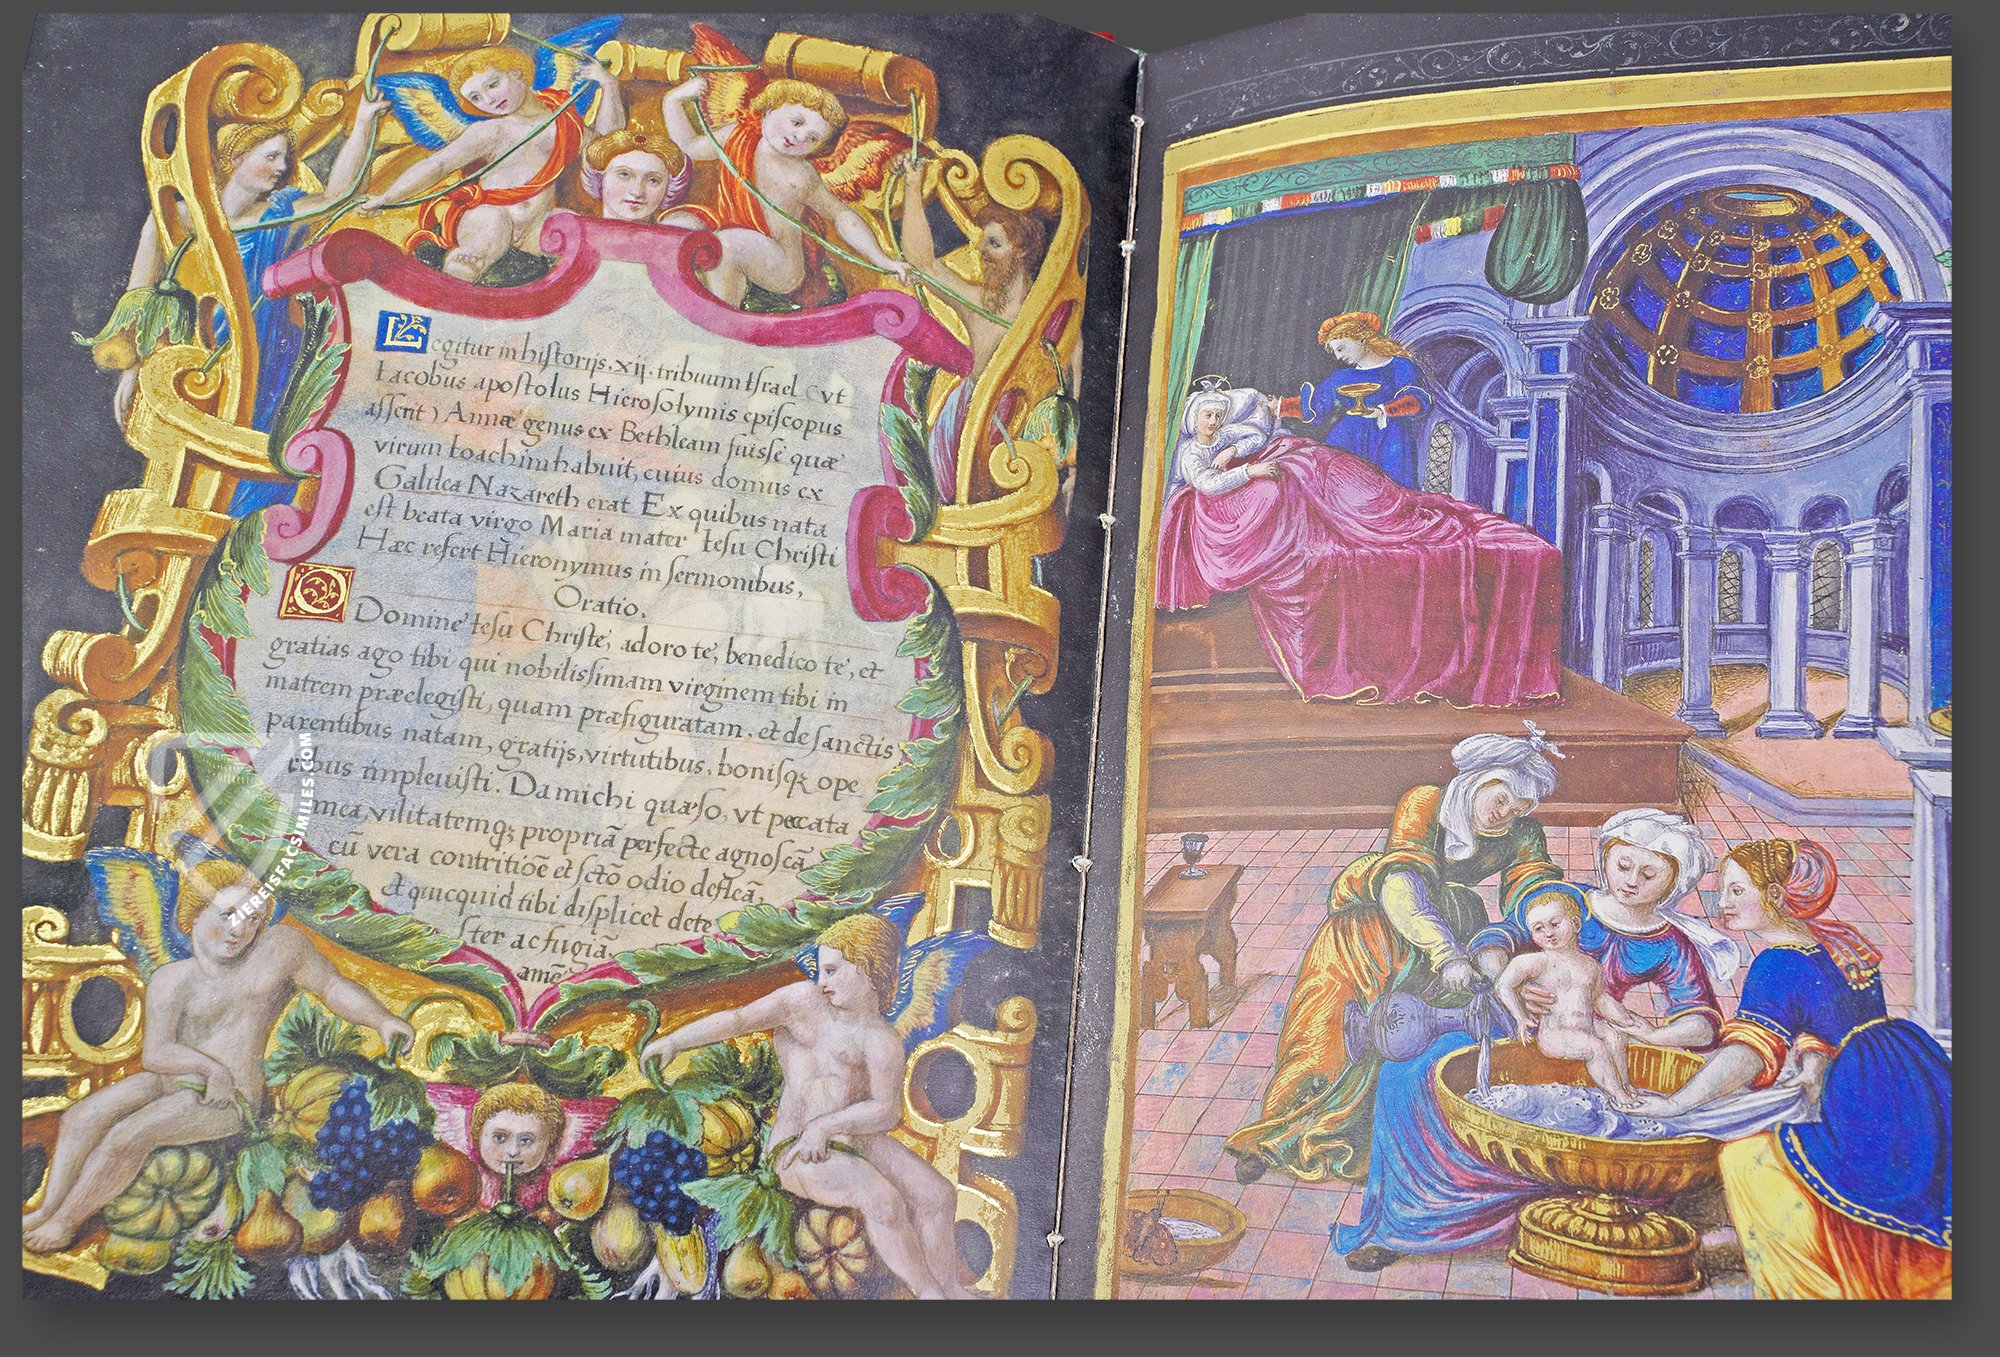 Legitur in historijs .xij. tribuum Israel (vt
Iacobus apostolus Hierosolymis episcopus
asserit) Annæ genus ex Bethleam fuisse quæ
virum Ioachim habuit, cuius domus ex
Galilea Nazareth erat Ex quibus nata
est beata virgo Maria mater Iesu Christi
Hæc refert Hieronymus in sermonibus,
Oratio.
O Domine Iesu Christe, adoro te, benedico te, et
gratias ago tibi qui nobilissimam virginem tibi in
matrem præelegisti, quam præfiguratam, et de sanctis
parentibus natam, gratijs, virtutibus, bonisqꝫ ope
ribus impleuisti. Da michi quæso, vt peccata
mea, vilitatemqꝫ propriã perfecte agnoscã
cũ vera contritiõe et sctõ odio defleã,
et quicquid tibi displicet dete
ster ac fugiã.
amẽ
ZIEREISFACSIMILES.COM